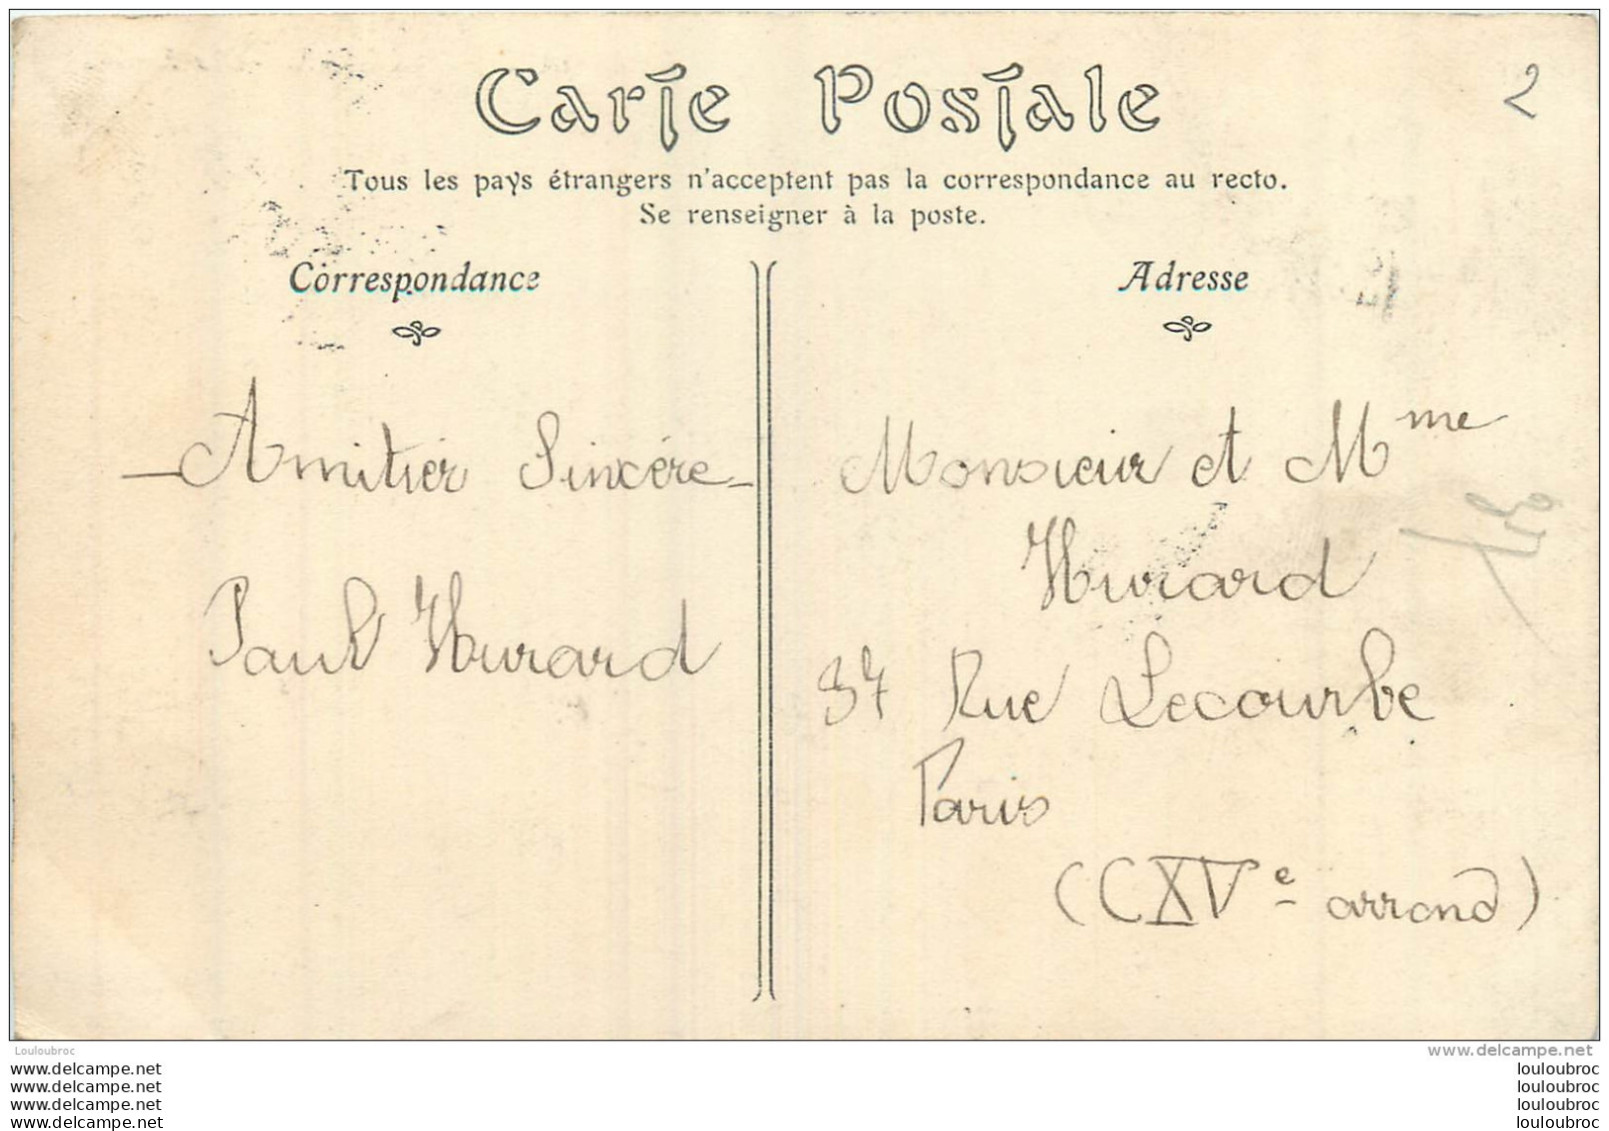 Carte Postale
2
Tous les pays étrangers n'acceptent pas la correspondance au recto.
Se renseigner à la poste.
Correspondance
Adresse
— Amitiér Sincère —
Paul Hurard
Monsieur et Mme
Hurard
37 Rue Lecourbe
Paris
(CXVe arrond)
Louloubroc
www.delcampe.net
www.delcampe.net
www.delcampe.net
www.delcampe.net
www.delcampe.net
louloubroc
louloubroc
louloubroc
louloubroc